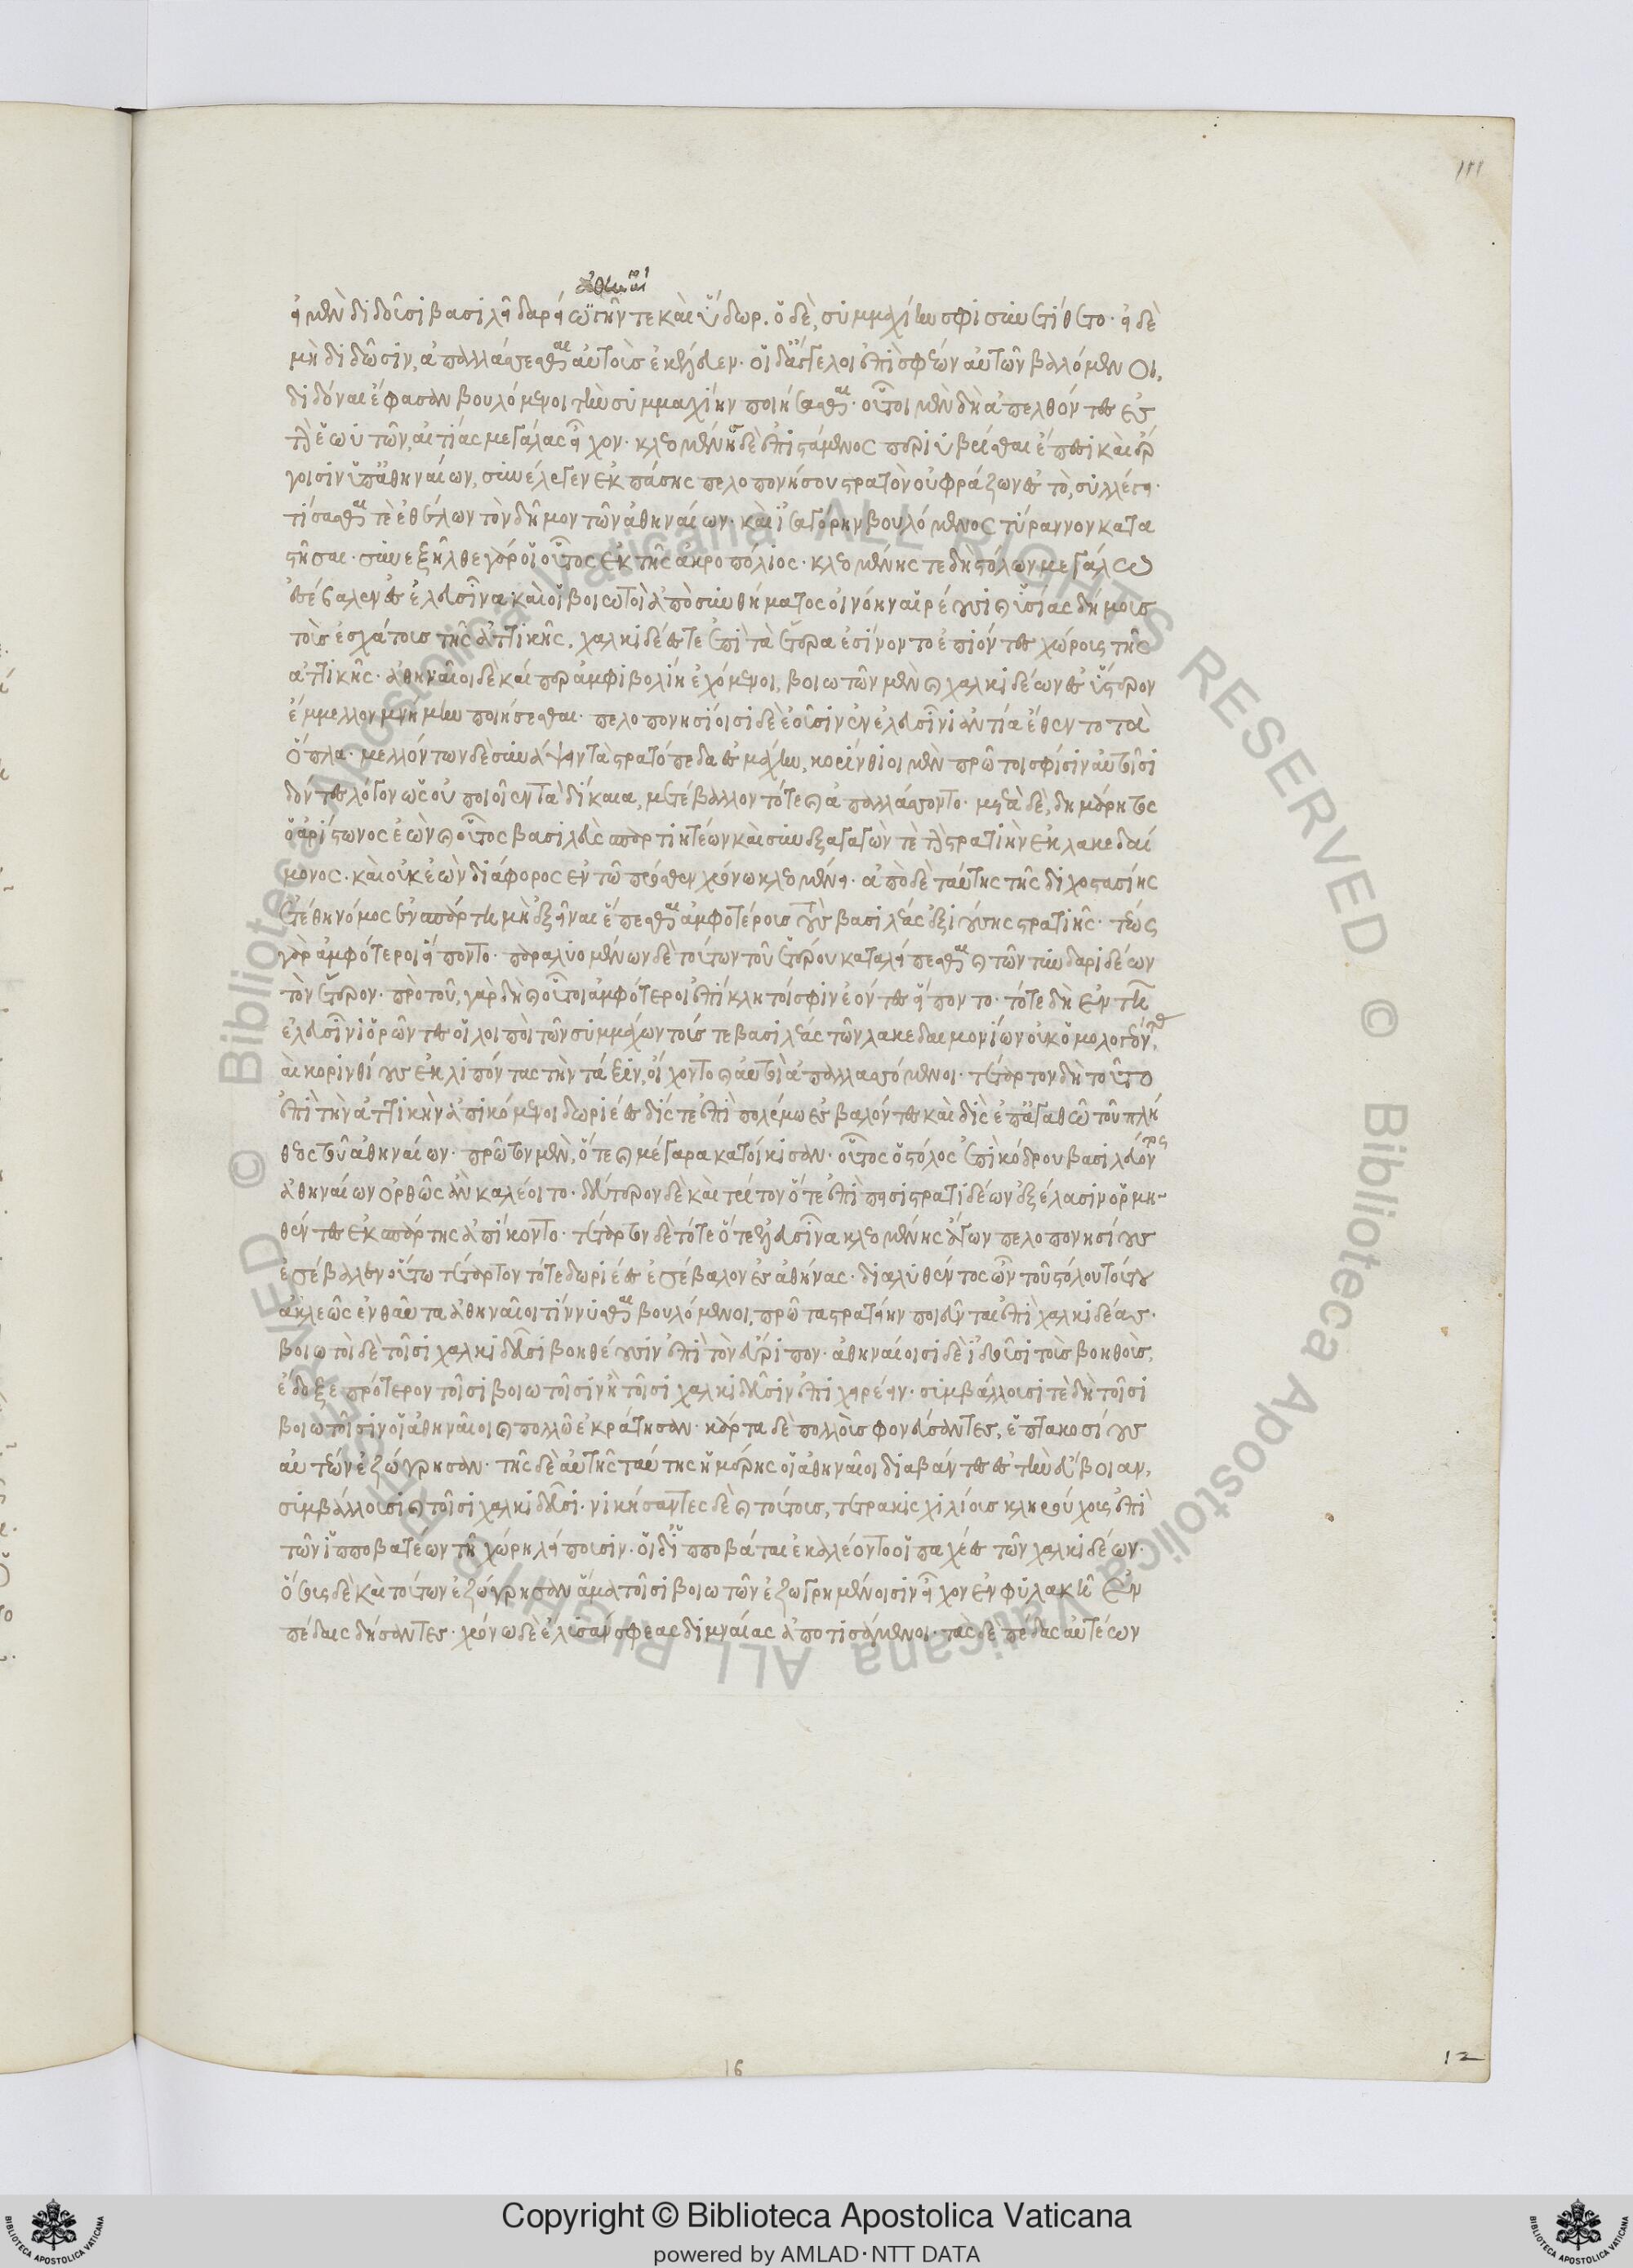 111
ἀθηναῖοι
εἰ μὲν διδοῦσι βασιλεῖ δαρείω γῆν τε καὶ ὕδωρ. ὁ δὲ, συμμαχίην σφι συνετίθετο· εἰ δὲ
μὴ διδῶσιν, ἀπαλλάσσεσθαι αὐτοὺς ἐκέλευεν. οἱ δ' ἄγγελοι ἐπὶ σφέων αὐτῶν βαλόμενοι,
διδόναι ἔφασαν βουλόμενοι τὴν συμμαχίην ποιήσασθαι. οὗτοι μὲν δὴ ἀπελθόντες ἐς
τὴν ἑωυτῶν, αἰτίας μεγάλας εἶχον. κλεομένης δὲ ἐπιστάμενος περιυβρίσθαι ἔπεσι καὶ ἔρ
γοισιν ὑπ' ἀθηναίων, συνέλεγεν ἐκ πάσης πελοπονήσου στρατὸν οὐ φράζων ἐς τὸ, συλλέγει.
τίσασθαί τε ἐθέλων τὸν δῆμον τῶν ἀθηναίων. καὶ ἰσαγόρην βουλόμενος τύραννον κατα
στῆσαι. συνεξῆλθε γάρ οἱ οὗτος ἐκ τῆς ἀκροπόλιος. κλεομένης τε δὴ στόλω μεγάλω
ἐσέβαλεν ἐς ἐλευσῖνα· καὶ οἱ βοιωτοὶ ἀπὸ συνθήματος οἰνόην αἱρέουσι καὶ ὑσίας δήμους
τοὺς ἐσχάτους τῆς ἀττικῆς. χαλκιδέες τε ἐπὶ τὰ ἕτερα ἐσίνοντο ἐπιόντες χώρους τῆς
ἀττικῆς. ἀθηναῖοι δὲ καί περ ἀμφιβολίη ἐχόμενοι, βοιωτῶν μὲν καὶ χαλκιδέων ἐς ὕστερον
ἔμμελλον μνήμην ποιήσεσθαι. πελοπονησίοισι δὲ ἐοῦσιν ἐν ἐλευσῖνι ἀντία ἔθεντο τὰ
ὅπλα. μελλόντων δὲ συνάψειν τὰ στρατόπεδα ἐς μάχην, κορίνθιοι μὲν πρῶτοι σφίσιν αὐτοῖσι
δόντες λόγον ὡς οὐ ποιοῖεν τὰ δίκαια, μετέβαλλον τότε καὶ ἀπαλλάσσοντο. μετὰ δὲ, δημάρητος
ὁ ἀρίστωνος ἐὼν καὶ οὗτος βασιλεὺς σπαρτιητέων καὶ συνεξαγαγών τε τὴν στρατιὴν ἐκ λακεδαί
μονος. καὶ οὐκ ἐὼν διάφορος ἐν τῶ πρόσθεν χρόνω κλεομένει. ἀπὸ δὲ ταύτης τῆς διχοστασίης
ἐτέθη νόμος ἐν σπάρτη μὴ ἐξεῖναι ἕπεσθαι ἀμφοτέρους τοὺς βασιλέας ἐξιούσης στρατιῆς. τέως
γὰρ ἀμφότεροι εἵποντο. παραλυομένων δὲ τούτων τοῦ ἑτέρου καταλείπεσθαι καὶ τῶν τυνδαριδέων
τὸν ἕτερον. πρὸ τοῦ, γὰρ δὴ καὶ οὗτοι ἀμφότεροι ἐπίκλητοί σφιν ἐόντες εἵποντο. τότε δὴ ἐν τῆ
ἐλευσῖνι ὁρῶντες οἱ λοιποὶ τῶν συμμάχων τούς τε βασιλέας τῶν λακεδαιμονίων οὐκ ὁμολογέοντας,
καὶ κορινθίους ἐκλιπόντας τὴν τάξιν, οἴχοντο καὶ αὐτοὶ ἀπαλλασσόμενοι. τέταρτον δὴ τοῦτο
ἐπὶ τὴν ἀττικὴν ἀπικόμενοι δωριέες δίς τε ἐπὶ πολέμω ἐσβαλόντες καὶ δὶς ἐπ' ἀγαθῶ τοῦ πλή
θεος τοῦ ἀθηναίων. πρῶτον μὲν, ὅτε καὶ μέγαρα κατοίκισαν. οὗτος ὁ στόλος ἐπὶ κόδρου βασιλεύοντος
ἀθηναίων ὀρθῶς ἂν καλέοιτο. δεύτερον δὲ καὶ τρίτον ὅτε ἐπὶ πεισιστρατιδέων ἐξέλασιν ὁρμη-
θέντες ἐκ σπάρτης ἀπίκοντο. τέταρτον δὲ τότε ὅτε ἐς ἐλευσῖνα κλεομένης ἄγων πελοπονησίους
ἐσέβαλεν οὕτω τέταρτον τότε δωριέες ἐσέβαλον ἐς ἀθήνας. διαλυθέντος ὦν τοῦ στόλου τούτου
ἀκλεῶς ἐνθαῦτα ἀθηναῖοι τίννυσθαι βουλόμενοι, πρῶτα στρατηίην ποιεῦνται ἐπὶ χαλκιδέας.
βοιωτοὶ δὲ τοῖσι χαλκιδεῦσι βοηθέουσιν ἐπὶ τὸν εὔριπον. ἀθηναίοισι δὲ ἰδοῦσι τοὺς βοηθοὺς,
ἔδοξε πρότερον τοῖσι βοιωτοῖσιν ἢ τοῖσι χαλκιδεῦσιν ἐπιχειρέειν. συμβάλλουσί τε δὴ τοῖσι
βοιωτοῖσιν οἱ ἀθηναῖοι καὶ πολλῶ ἐκράτησαν. κάρτα δὲ πολλοὺς φονεύσαντες, ἑπτακοσίους
αὐτέων ἐζώγρησαν. τῆς δὲ αὐτῆς ταύτης ἡμέρης οἱ ἀθηναῖοι διαβάντες ἐς τὴν εὔβοιαν,
συμβάλλουσι καὶ τοῖσι χαλκιδεῦσι. νικήσαντες δὲ καὶ τούτους, τετρακισχιλίους κληρούχους ἐπὶ
τῶν ἱπποβατέων τῆ χώρη λείπουσιν. οἱ δ' ἱπποβάται ἐκαλέοντο οἱ παχέες τῶν χαλκιδέων.
ὅσους δὲ καὶ τούτων ἐζώγρησαν ἅμα τοῖσι βοιωτῶν ἐζωγρημένοισιν εἶχον ἐν φυλακῆ ἐν
πέδαις δήσαντες. χρόνω δὲ ἔλυσάν σφεας διμναίας ἀποτισάμενοι. τὰς δὲ πέδας αὐτέων
16
12
Copyright © Biblioteca Apostolica Vaticana
powered by AMLAD·NTT DATA